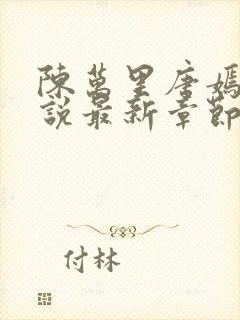 陳萬里唐嫣
說最新章節
付林